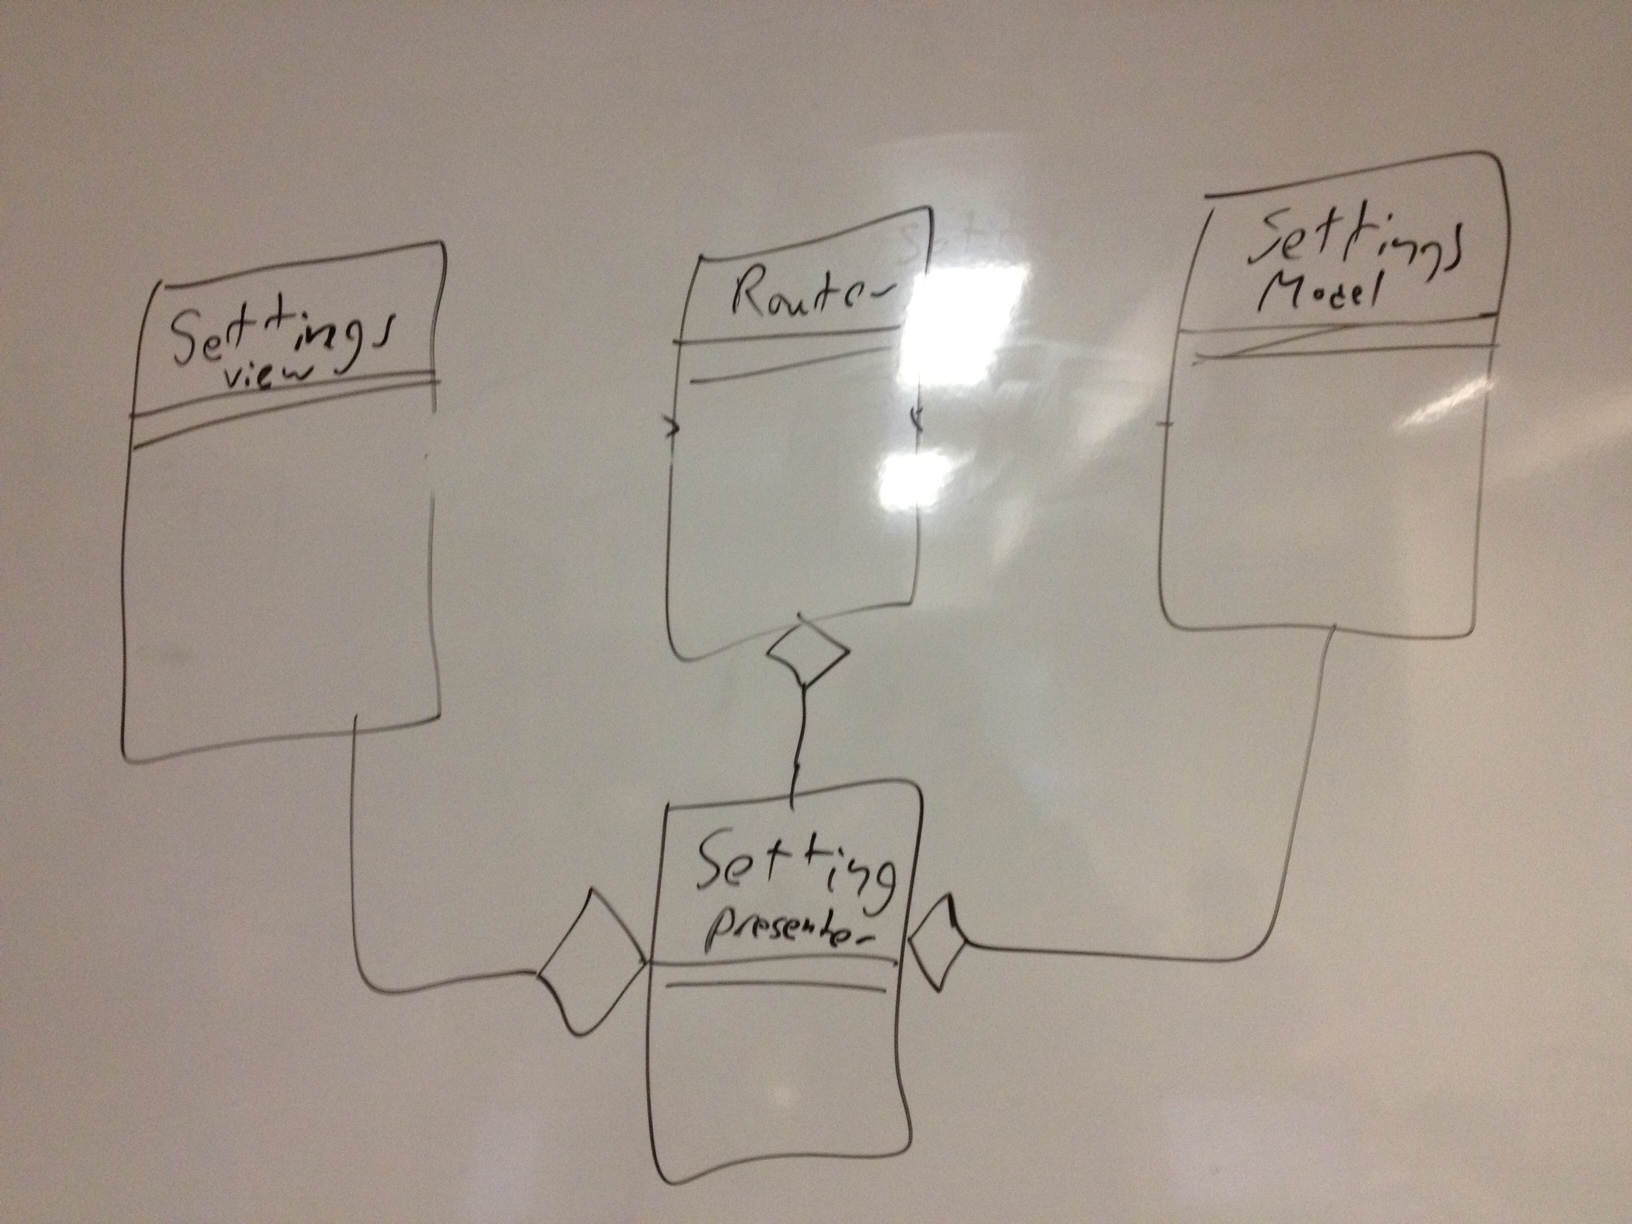 Settings
view
Router
Settings
Model
Setting
presenter